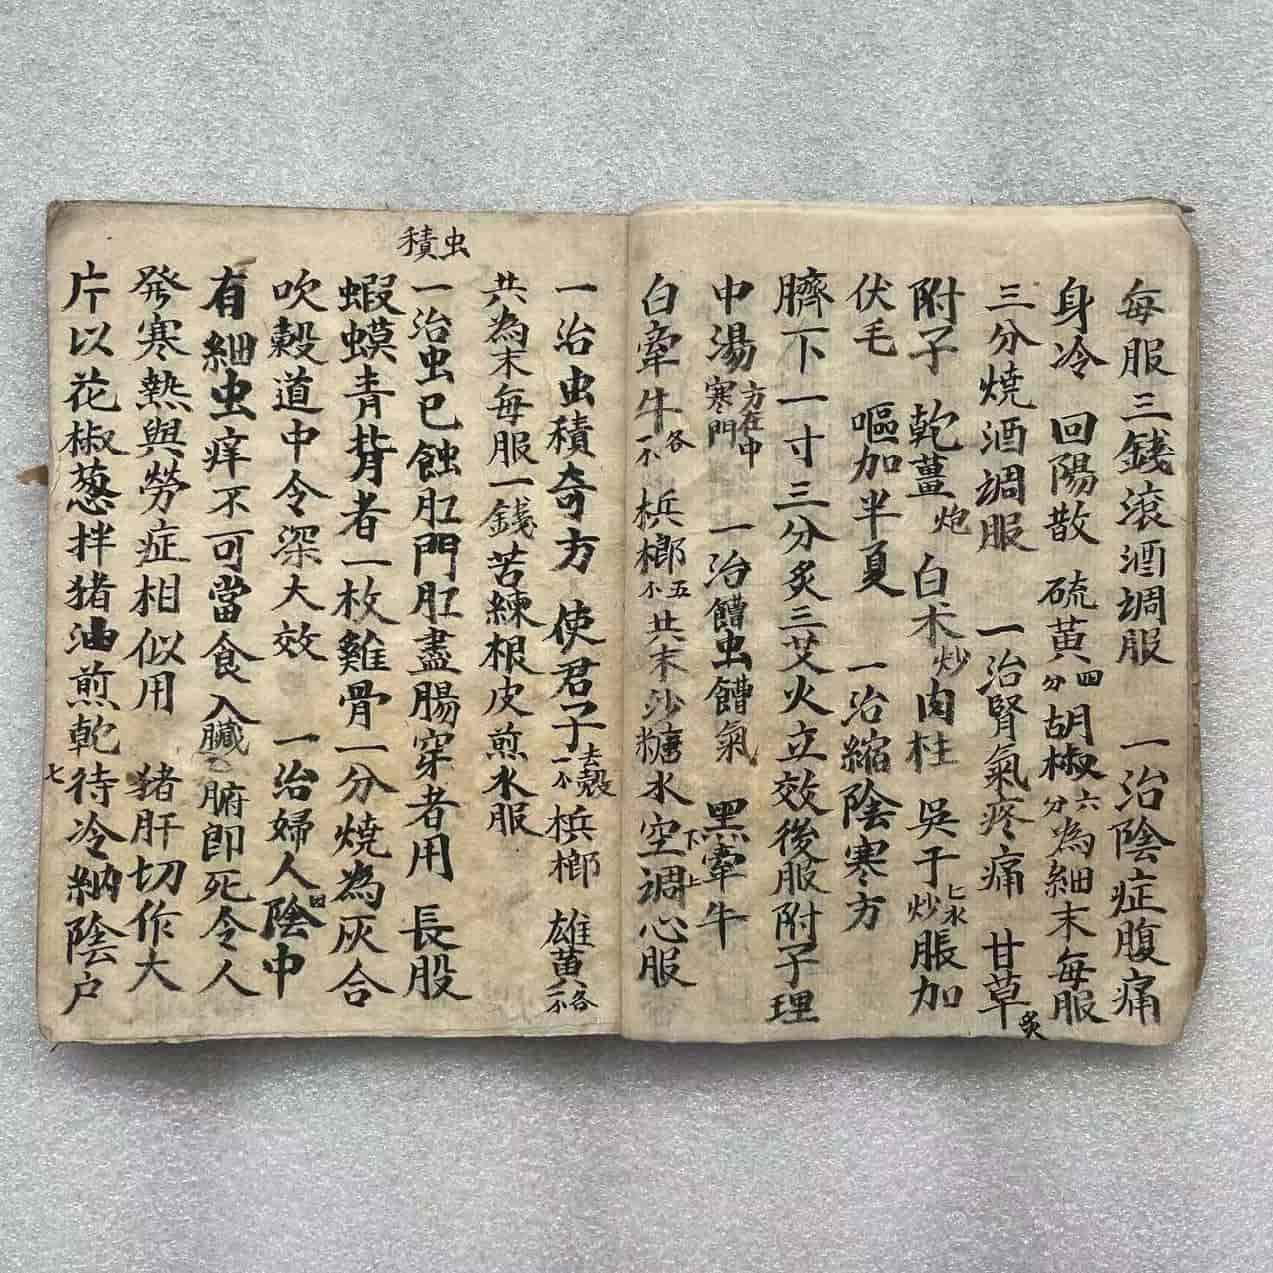 每服三錢滾酒調服　一治陰症腹痛
身冷　回陽散　硫黃四分胡椒六分為細末每服
三分燒酒調服　一治腎氣疼痛　甘草炙
附子　乾薑炮　白术炒肉柱　吳于七水炒脹加
伏毛　嘔加半夏　一治縮陰寒方
臍下一寸三分炙三艾火立效後服附子理
中湯方在中寒門　一治饋虫饋氣　黑牽牛
白牽牛各一不　梹榔五不共末沙糖水空調心服下上
虫積
一治虫積奇方　使君子去殼一不梹榔　雄黃各不
共為末每服一錢苦練根皮煎水服
一治虫已蝕肛門肛盡腸穿者用　長股
蝦蟆青背者一枚雞骨一分燒為灰合
吹穀道中令深大效　一治婦人陰中
有細虫痒不可當食入臟腑即死令人
發寒熱與勞症相似用　猪肝切作大
片以花椒葱拌猪油煎乾待冷納陰户
七